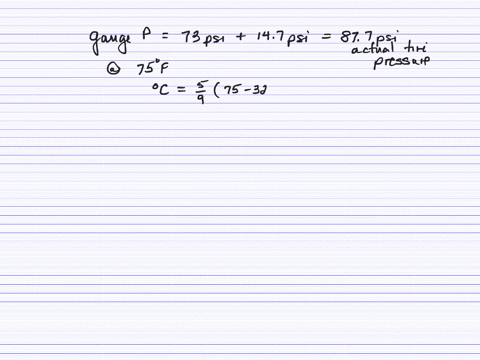 gauge P = 73 psi + 14.7 psi = 87.7 psi
actual tire
pressure
@ 75°F
°C = 5/9 ( 75 - 32